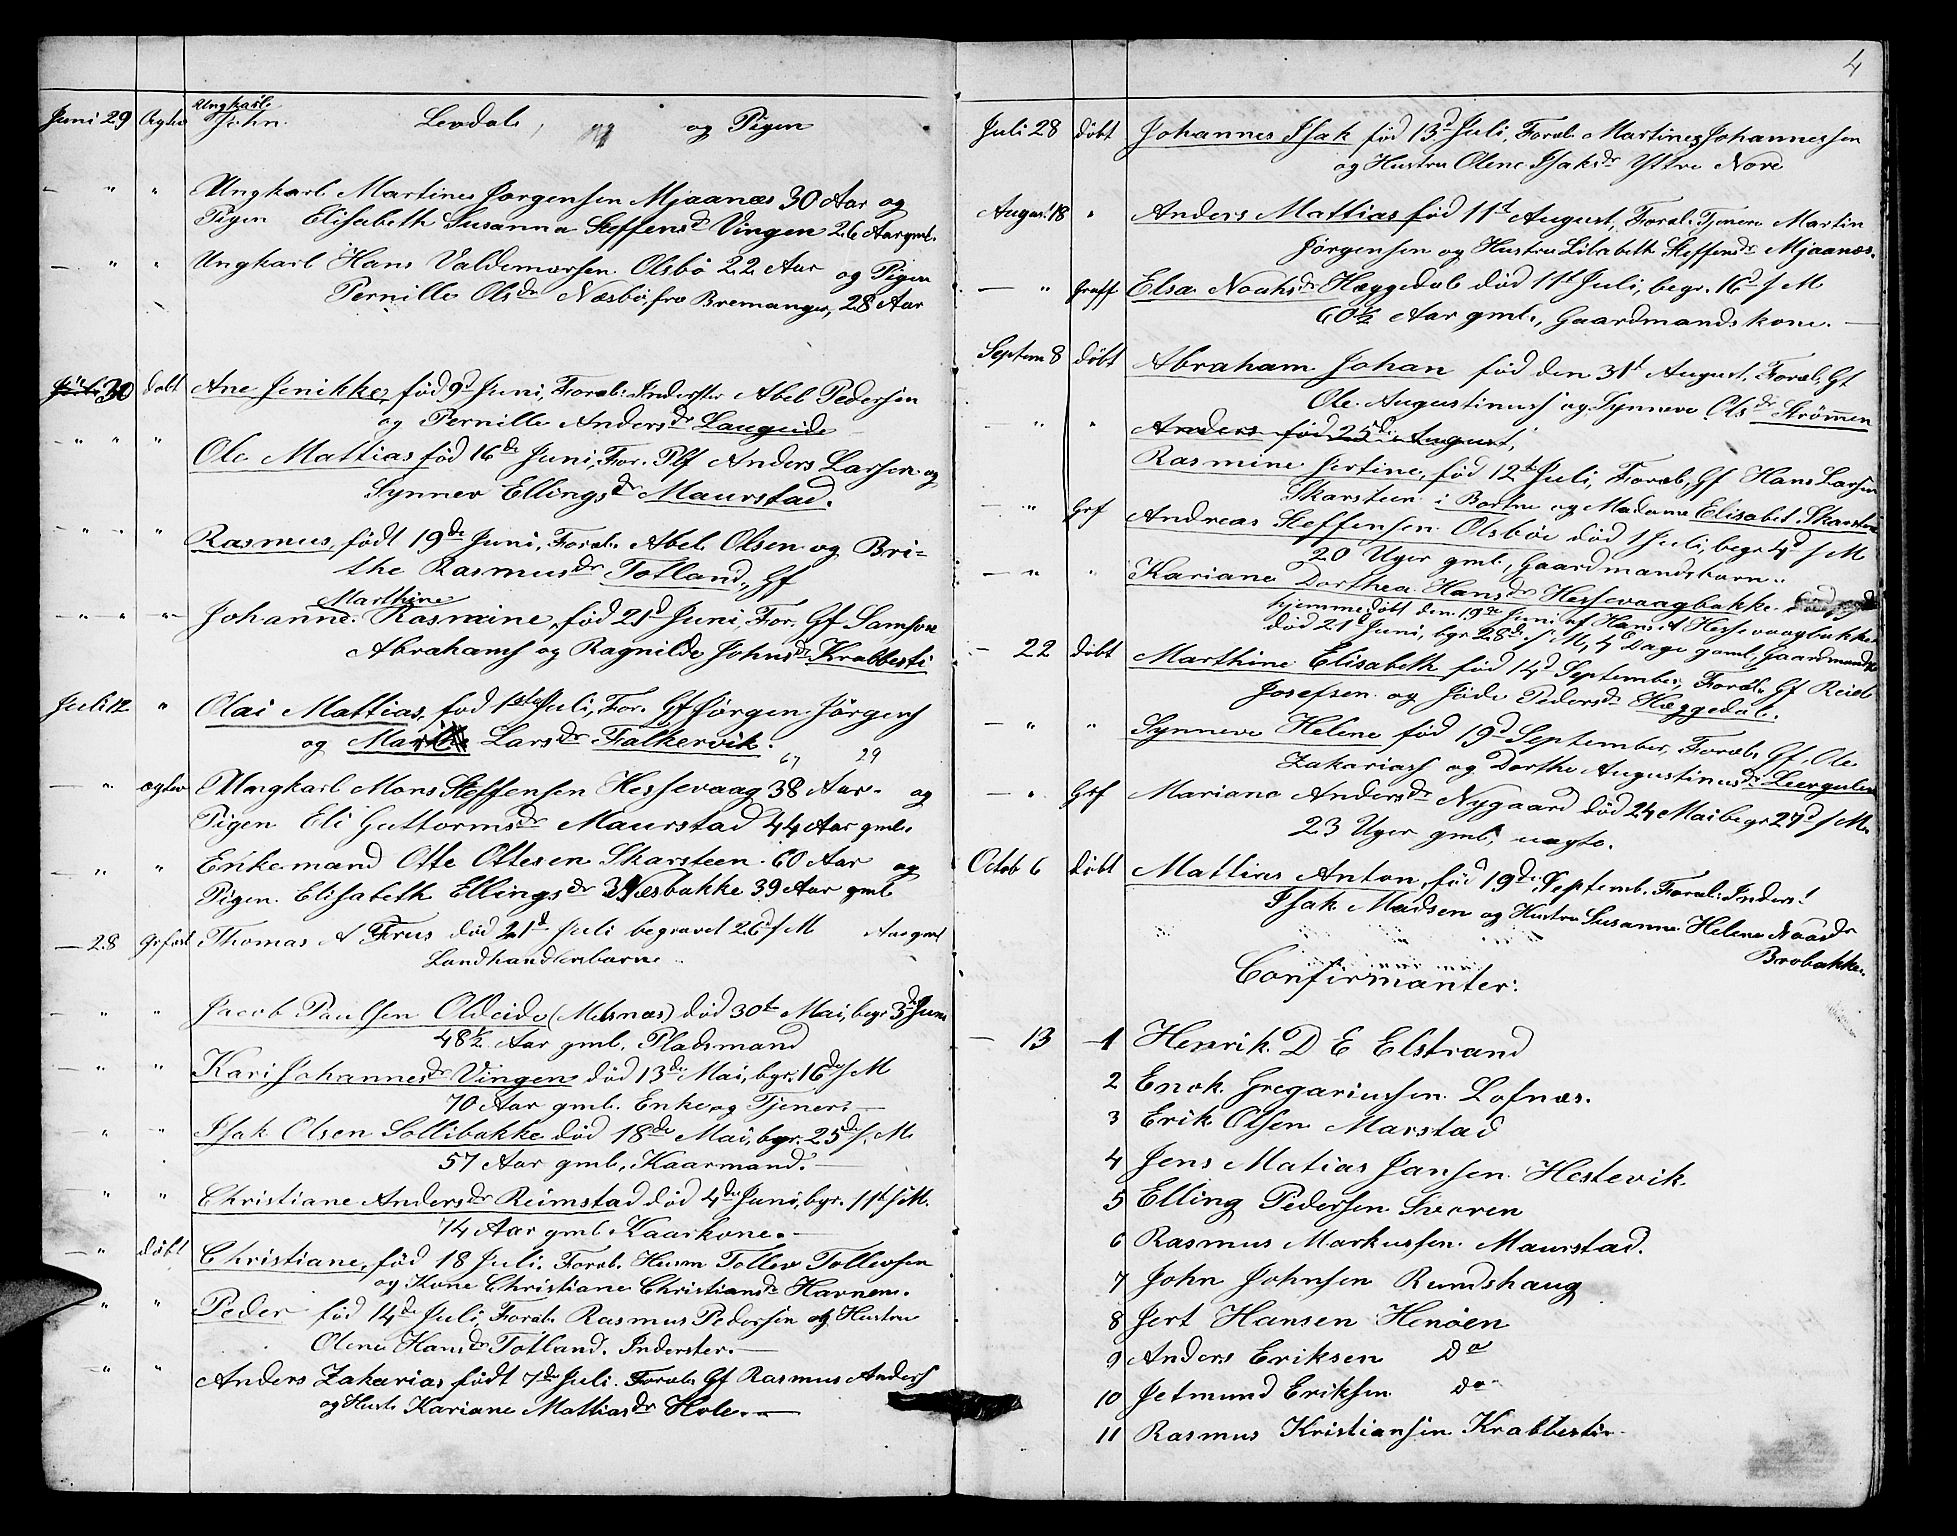 Ungkarl
Juni 29 Ægtev John Levdal, og og Pigen
— " " Ungkarl Martines Jørgensen Mjaanæs 30 Aar og
Pigen Elisabeth Susanna Steffensdr Vingen 26 Aar gml.
— " " Ungkarl Hans Valdemarsen Olsbö 22 Aar og Pigen
Pernille Olsdr Næsbö, fra Bremanger, 28 Aar
Juli 30 döbt Ane Jenikke, föd 9d Juni, Foræl. Inderster Abel Pedersen
og Pernille Andersdr Laugeide
" " " Ole Mattias föd 16de Juni, For. Plf Anders Larsen og
Synnev Ellingsdr Maurstad.
- " - " " Rasmus, födt 19de Juni, Foræl. Abel Olsen og Bri-
the Rasmusdr Totland, Gf
Marthine
- " - " - " Johanne Rasmine, föd 21d Juni, For. Gf Samson
Abrahams og Ragnilde Johnsdr Krabbesti
Juli 12 " Olai Mattias, föd 1ste Juli, For. Gf Jörgen Jörgens
og Larsdr Falkevik.
29
— " ægtev Ungkarl Mons Steffensen Hessevaag 38 Aar og
Pigen Eli Guttormsdr Maurstad 44 Aar gml.
— " " Enkemand Otte Ottesen Skarsteen 60 Aar og
Pigen Elisabeth Ellingsdr Næsbakke 39 Aar gml
— 28 Thomas A Frus död 21d Juli begravet 26d s M Aar gml
- " " Jacob Paulsen Oldeide (Melsnæs) död 30te Mai, begr 3d Juni
48½ Aar gml. Pladsmand
- " " Kari Johannesdr Vingen död 13de Mai, bgr. 16de s M
70 Aar gml. Enke og Tjener. —
- " " Isak Olsen Sollibakke död 18de Mai, bgr. 25de s. M.
57 Aar gml. Kaarmand. —
- " " Christiane Andersdr Reimstad död 4de Juni, bgr. 11te s M.
74 Aar gml. Kaarkone. —
— " döbt Christiane, föd 18 Juli. Foræl. Husm Tollev Tollevsen
og Kone Christiane Christiansdr Havnen.
- " " Peder föd 14de Juli, Foræl. Rasmus Pedersen og Hustru
Olene Hansdr Totland. Inderster. —
- " " Anders Zakarias födt 7de Juli. Foræl. Gf Rasmus Anders
og Hust. Kariane Mattiasdr Hole. —
4
Juli 28 döbt Johannes Isak föd 13d Juli, Foræl. Martines Johannessen
og Hustru Olene Isaksdr Yttre Nore
August 18 " Anders Mattias föd 11te August, Foræl. Tjener Martin
Jørgensen og Hustru Lisabeth Steffensdr Mjaanæs.
— " Graff Elsa Noahsdr Hæggedal död 11te Juli, begr. 16d s M
60½ Aar gml., Gaardmandskone. —
Septem 8 döbt Abraham Johan föd den 31t August, Foræl. Gf
Ole Augustinuss og Synneve Olsdr Strömmen
— " " Anders föd 25de August,
Rasmine Jertine, föd 12te Juli, Foræl, Gf Hans Larsen
Skarsteen i Bortne og Madame Elisabet Skarsteen
— " Grf Andreas Steffensen Olsböe död 1 Juli, begr 4d s M
20 Uger gml., Gaardmandsbarn.
— " " Kariane Dorthea Hansdr Hessevaagbakke
hjemmedöbt den 19de Juni af Hans A Hessevaagbakke
död 21d Juni, bgr 28de s. M, 4 Dage gaml, Gaardmandsb
— 22 döbt Marthine Elisabeth föd 14d September, Foræl. Gf Reid
Josefsen og Jöde Pedersdr Hæggedal.
— " " Synneve Helene föd 19d September, Foræl. Gf. Ole
Zakariass og Dorthe Augustinusdr Leergulen
— " Grf Mariane Andersdr Nygaard död 24 Mai begr 27d s M
23 Uger gml, uægte.
Octob 6 döbt Mattias Anton, föd 19de Septemb. Foræl. Inders!
Isak Madsen og Hustru Susanne Helene Noasdr
Brobakke.
Confirmanter:
— 13 — 1 Henrik D E Elstrand
2 Enok Gregariussen Lofnæs.
3 Erik Olsen Marstad
4 Jens Matias Jansen Hestevik
5 Elling Pedersen Svoren
6 Rasmus Markussen Maurstad.
7 John Johnsen Rundshaug
8 Jert Hansen Henöen
9 Anders Eriksen Do
10 Jetmund Eriksen do
11 Rasmus Kristiansen Krabbestie